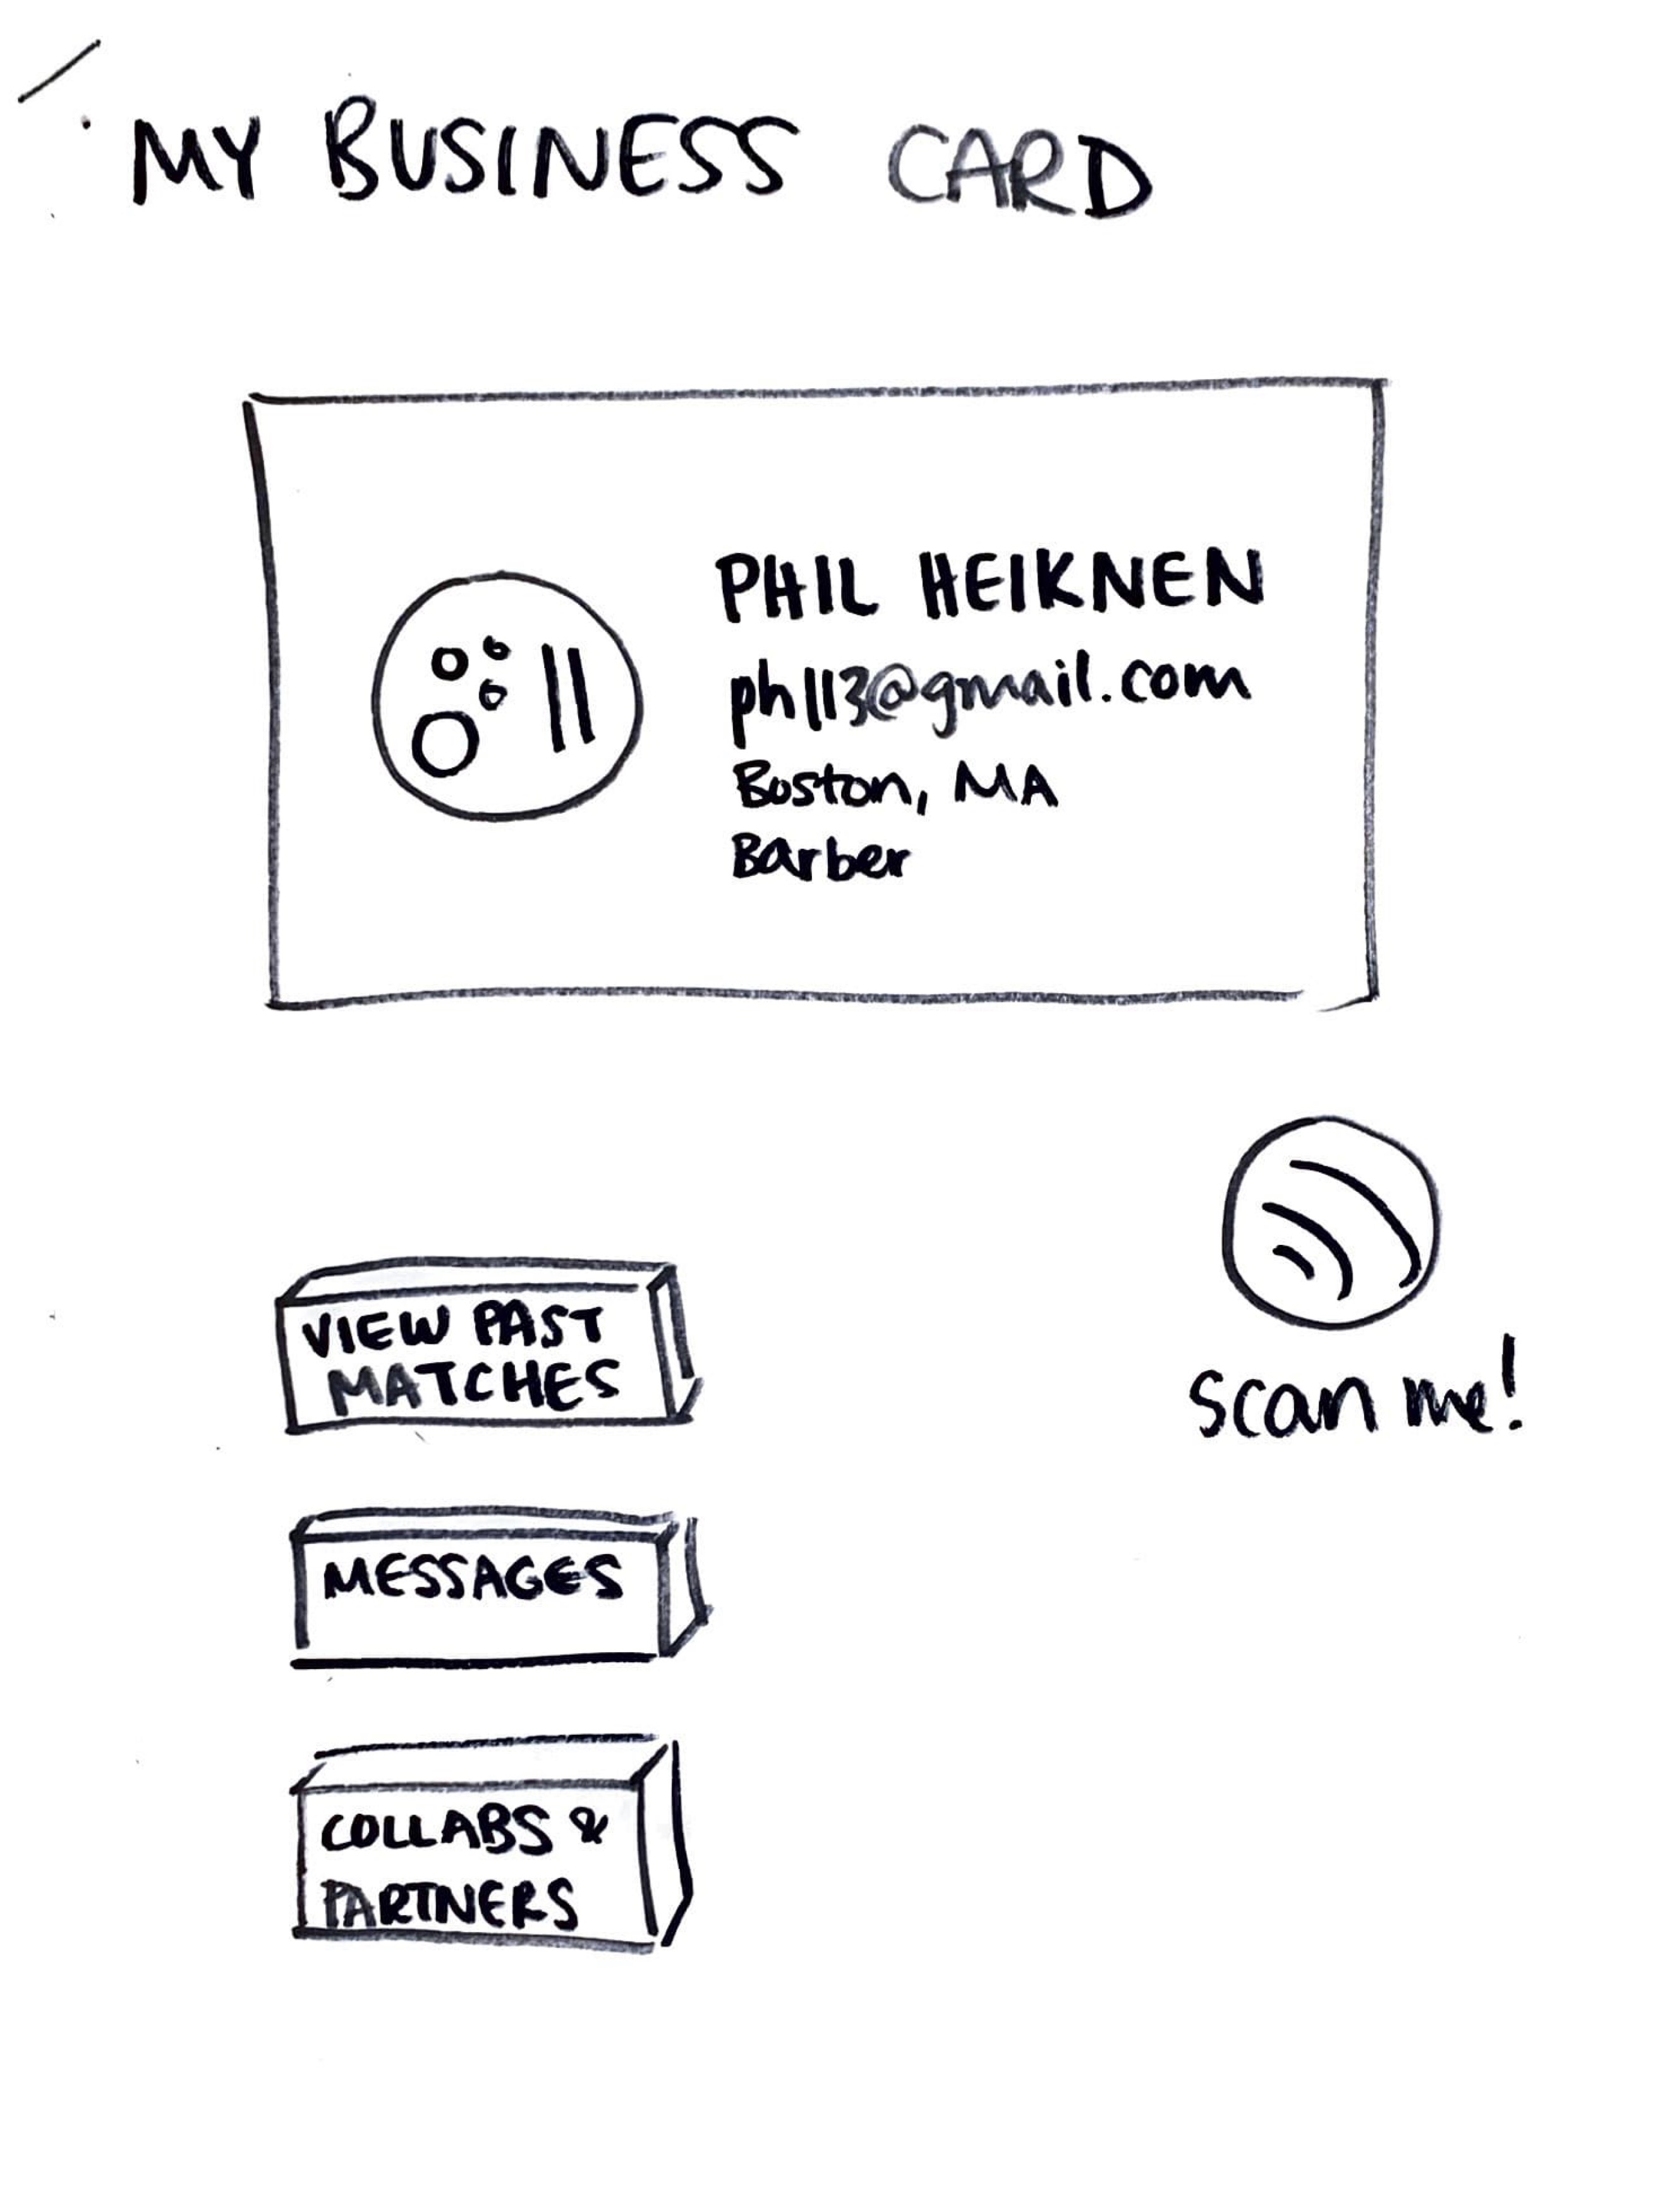 MY BUSINESS CARD
PHIL HEIKNEN
ph113@gmail.com
Boston, MA
Barber
VIEW PAST
MATCHES
scan me!
MESSAGES
COLLABS &
PARTNERS